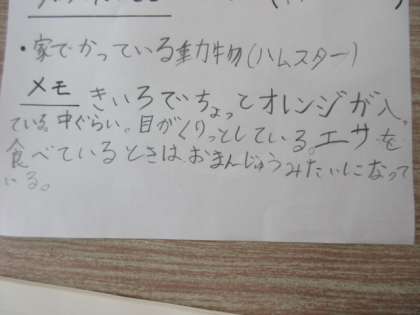 ・家でかっている動物(ハムスター)
メモ きいろでちょってオレンジが入っ
ている。中ぐらい。目がくりっとしている。エサを
食べているときはおまんじゅうみたいになって
いる。